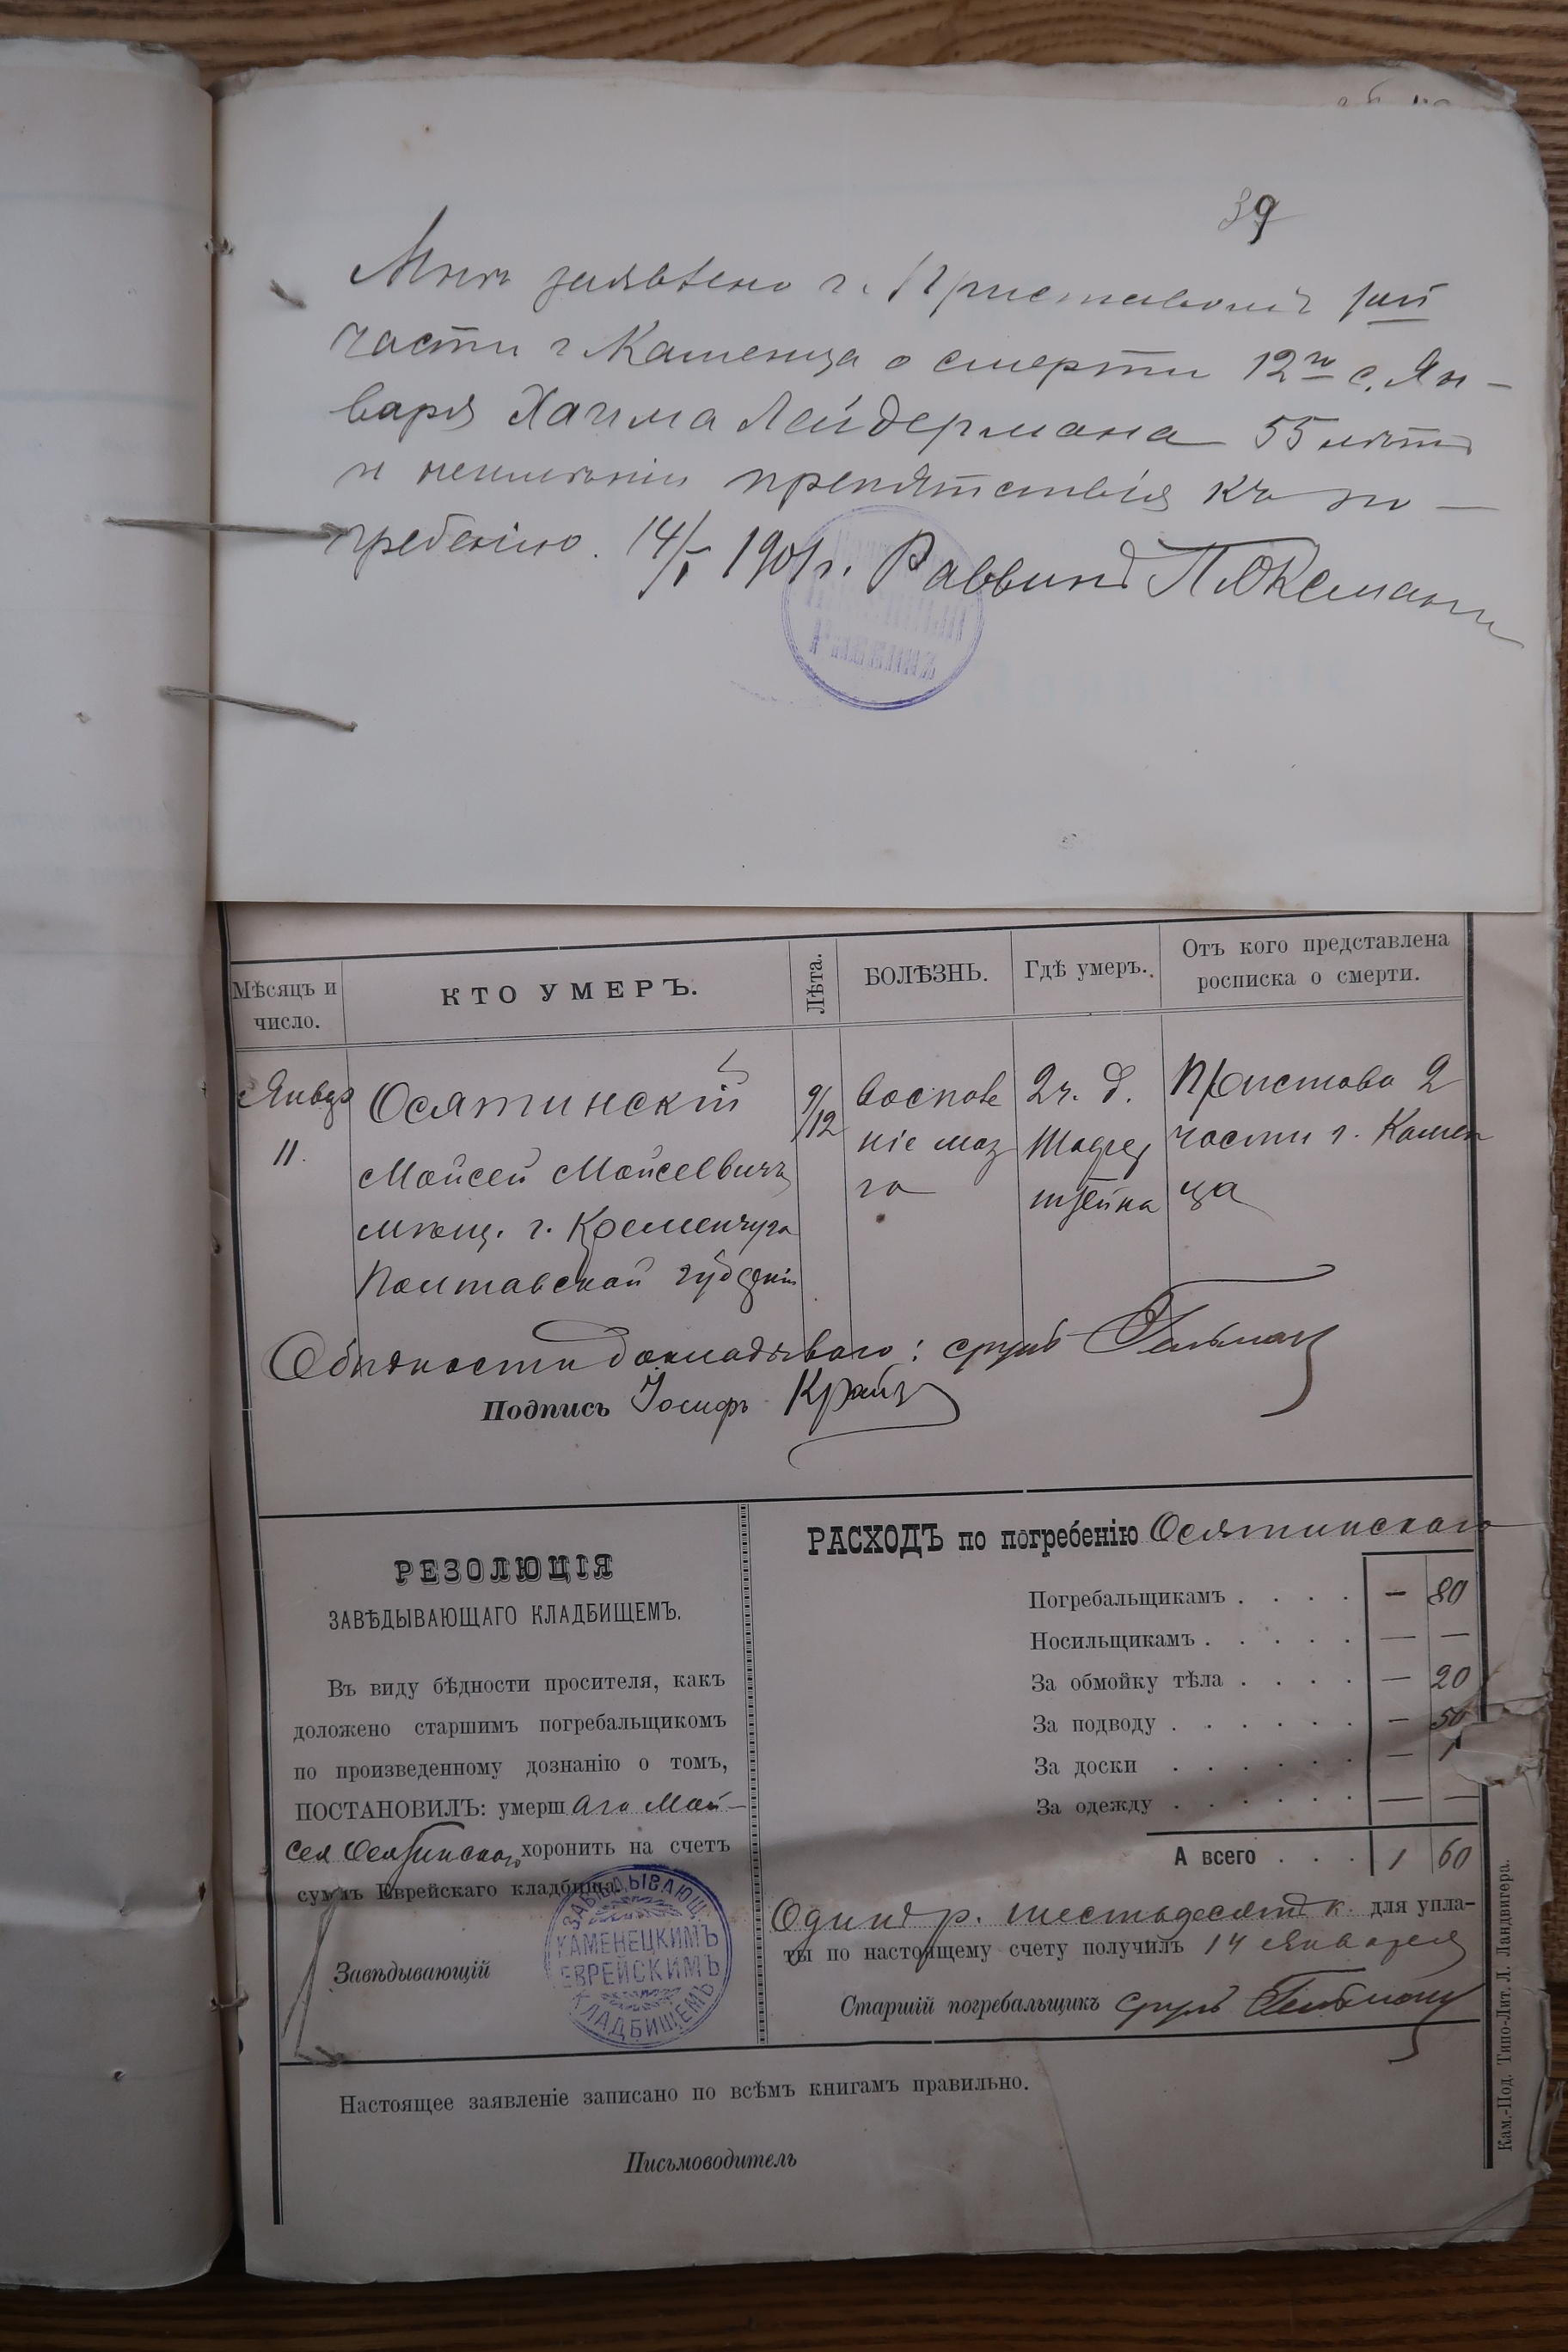 39
Мнѣ заявлено г. Приставомъ 1ой
части г Каменца о смерти 12го с. Ян-
варя Хаима Лейдермана 55 лѣтъ
и неимѣнiи препятствiя къ по-
гребенiю. 14/I 1901 г. Раввинъ
Мѣсяцъ и число.
КТО УМЕРЪ.
Лѣта.
БОЛѢЗНЬ.
Гдѣ умеръ.
Отъ кого представлена
росписка о смерти.
Январ
11.
Осятинскiй
Мойсей Мойсеевичъ
мѣщ. г. Кременчуга
Полтавской губернiи
9/12
воспале
нiе моз
га
2 ч. д.
штейна
Пристава 2
части г. Камен
ца
О бѣдности докладываю: сруль Гельман
Подпись Iосифъ
РЕЗОЛЮЦIЯ
ЗАВѢДЫВАЮЩАГО КЛАДБИЩЕМЪ.
Въ виду бѣдности просителя, какъ
доложено старшимъ погребальщикомъ
по произведенному дознанiю о томъ,
ПОСТАНОВИЛЪ: умершаго Мой-
сея Осятинскаго хоронить на счетъ
суммъ Еврейскаго кладбища.
Завѣдывающiй
ЗАВѢДЫВАЮЩ.
КАМЕНЕЦКИМЪ
ЕВРЕЙСКИМЪ
КЛАДБИЩЕМЪ
РАСХОДЪ по погребенiю Осятинскаго
Погребальщикамъ . . . . — 80
Носильщикамъ . . . . . — —
За обмойку тѣла . . . . — 20
За подводу . . . . . . — 50
За доски . . . . . — 1
За одежду . . . . . . — —
А всего . . . 1 60
Одинъ р. шестьдесятъ к. для упла-
ты по настоящему счету получилъ 14 Января
Старшiй погребальщикъ сруль Гельман
Настоящее заявленiе записано по всѣмъ книгамъ правильно.
Письмоводитель
Кам.-Под. Типо-Лит. Л. Ландвигера.